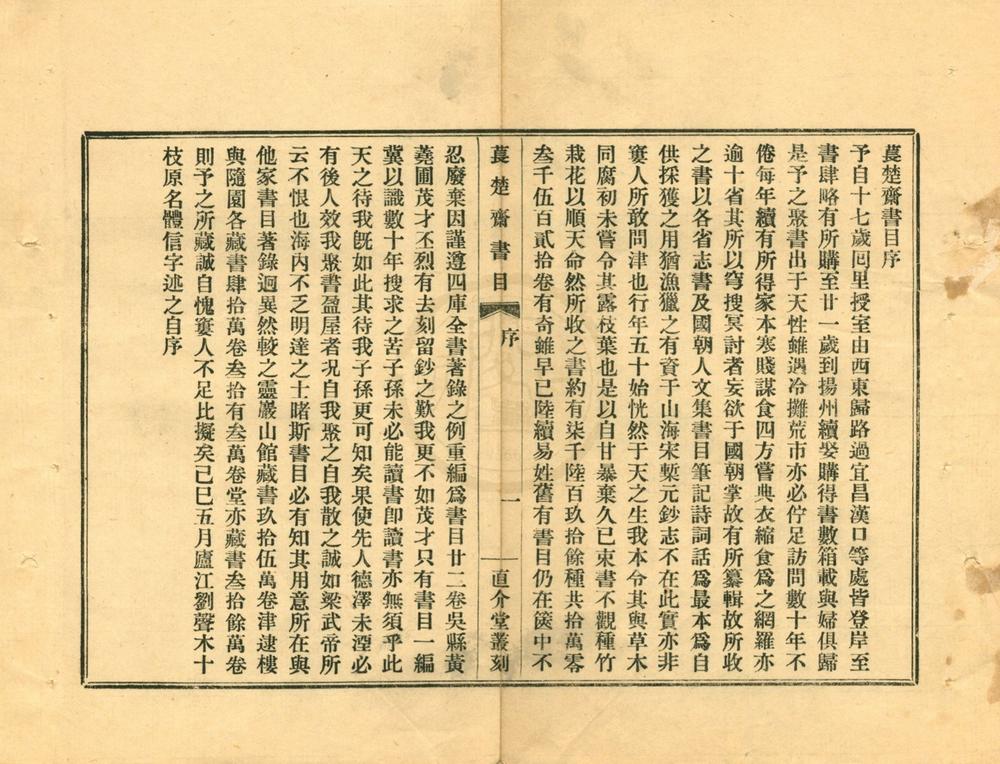 萇楚齋書目序
予自十七歲囘里授室由西東歸路過宜昌漢口等處皆登岸至
書肆略有所購至廿一歲到揚州續娶購得書數箱載與婦俱歸
是予之聚書出于天性雖遇冷攤荒市亦必佇足訪問數十年不
倦每年續有所得家本寒賤謀食四方嘗典衣縮食爲之網羅亦
逾十省其所以穹搜冥討者妄欲于國朝掌故有所纂輯故所收
之書以各省志書及國朝人文集書目筆記詩詞話爲最本爲自
供採獲之用猶漁獵之有資于山海宋槧元鈔志不在此實亦非
窶人所敢問津也行年五十始恍然于天之生我本令其與草木
同腐初未嘗令其露枝葉也是以自甘暴棄久已束書不觀種竹
栽花以順天命然所收之書約有柒千陸百玖拾餘種共拾萬零
叁千伍百貳拾卷有奇雖早已陸續易姓舊有書目仍在篋中不
萇楚齋書目
序
一
直介堂叢刻
忍廢棄因謹遵四庫全書著錄之例重編爲書目廿二卷吳縣黃
蕘圃茂才丕烈有去刻留鈔之歎我更不如茂才只有書目一編
冀以識數十年搜求之苦子孫未必能讀書卽讀書亦無須乎此
天之待我旣如此其待我子孫更可知矣果使先人德澤未湮必
有後人效我聚書盈屋者况自我聚之自我散之誠如梁武帝所
云不恨也海內不乏明達之士睹斯書目必有知其用意所在與
他家書目著錄迥異然較之靈巖山館藏書玖拾伍萬卷津逮樓
與隨園各藏書肆拾萬卷叁拾有叁萬卷堂亦藏書叁拾餘萬卷
則予之所藏誠自愧窶人不足比擬矣己巳五月廬江劉聲木十
枝原名體信字述之自序